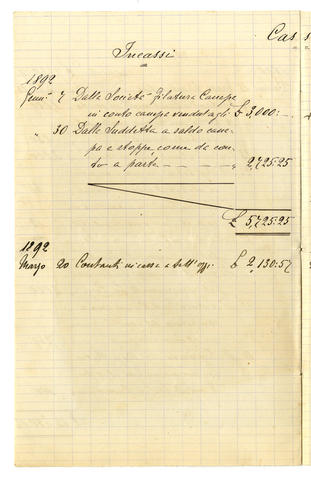 Cas
Incassi
1892
Genn° 7 Dalla Società filatura Canepe
in conto canepe vendutagli £ 3,000: —
" 30 Dalla Suddetta a saldo cane-
pa e stoppe, come da con-
to a parte — — — " 2,725:25
£ 5,725:25
1892
Marzo 20 Contanti in cassa a tutt'oggi £ 2,130:57